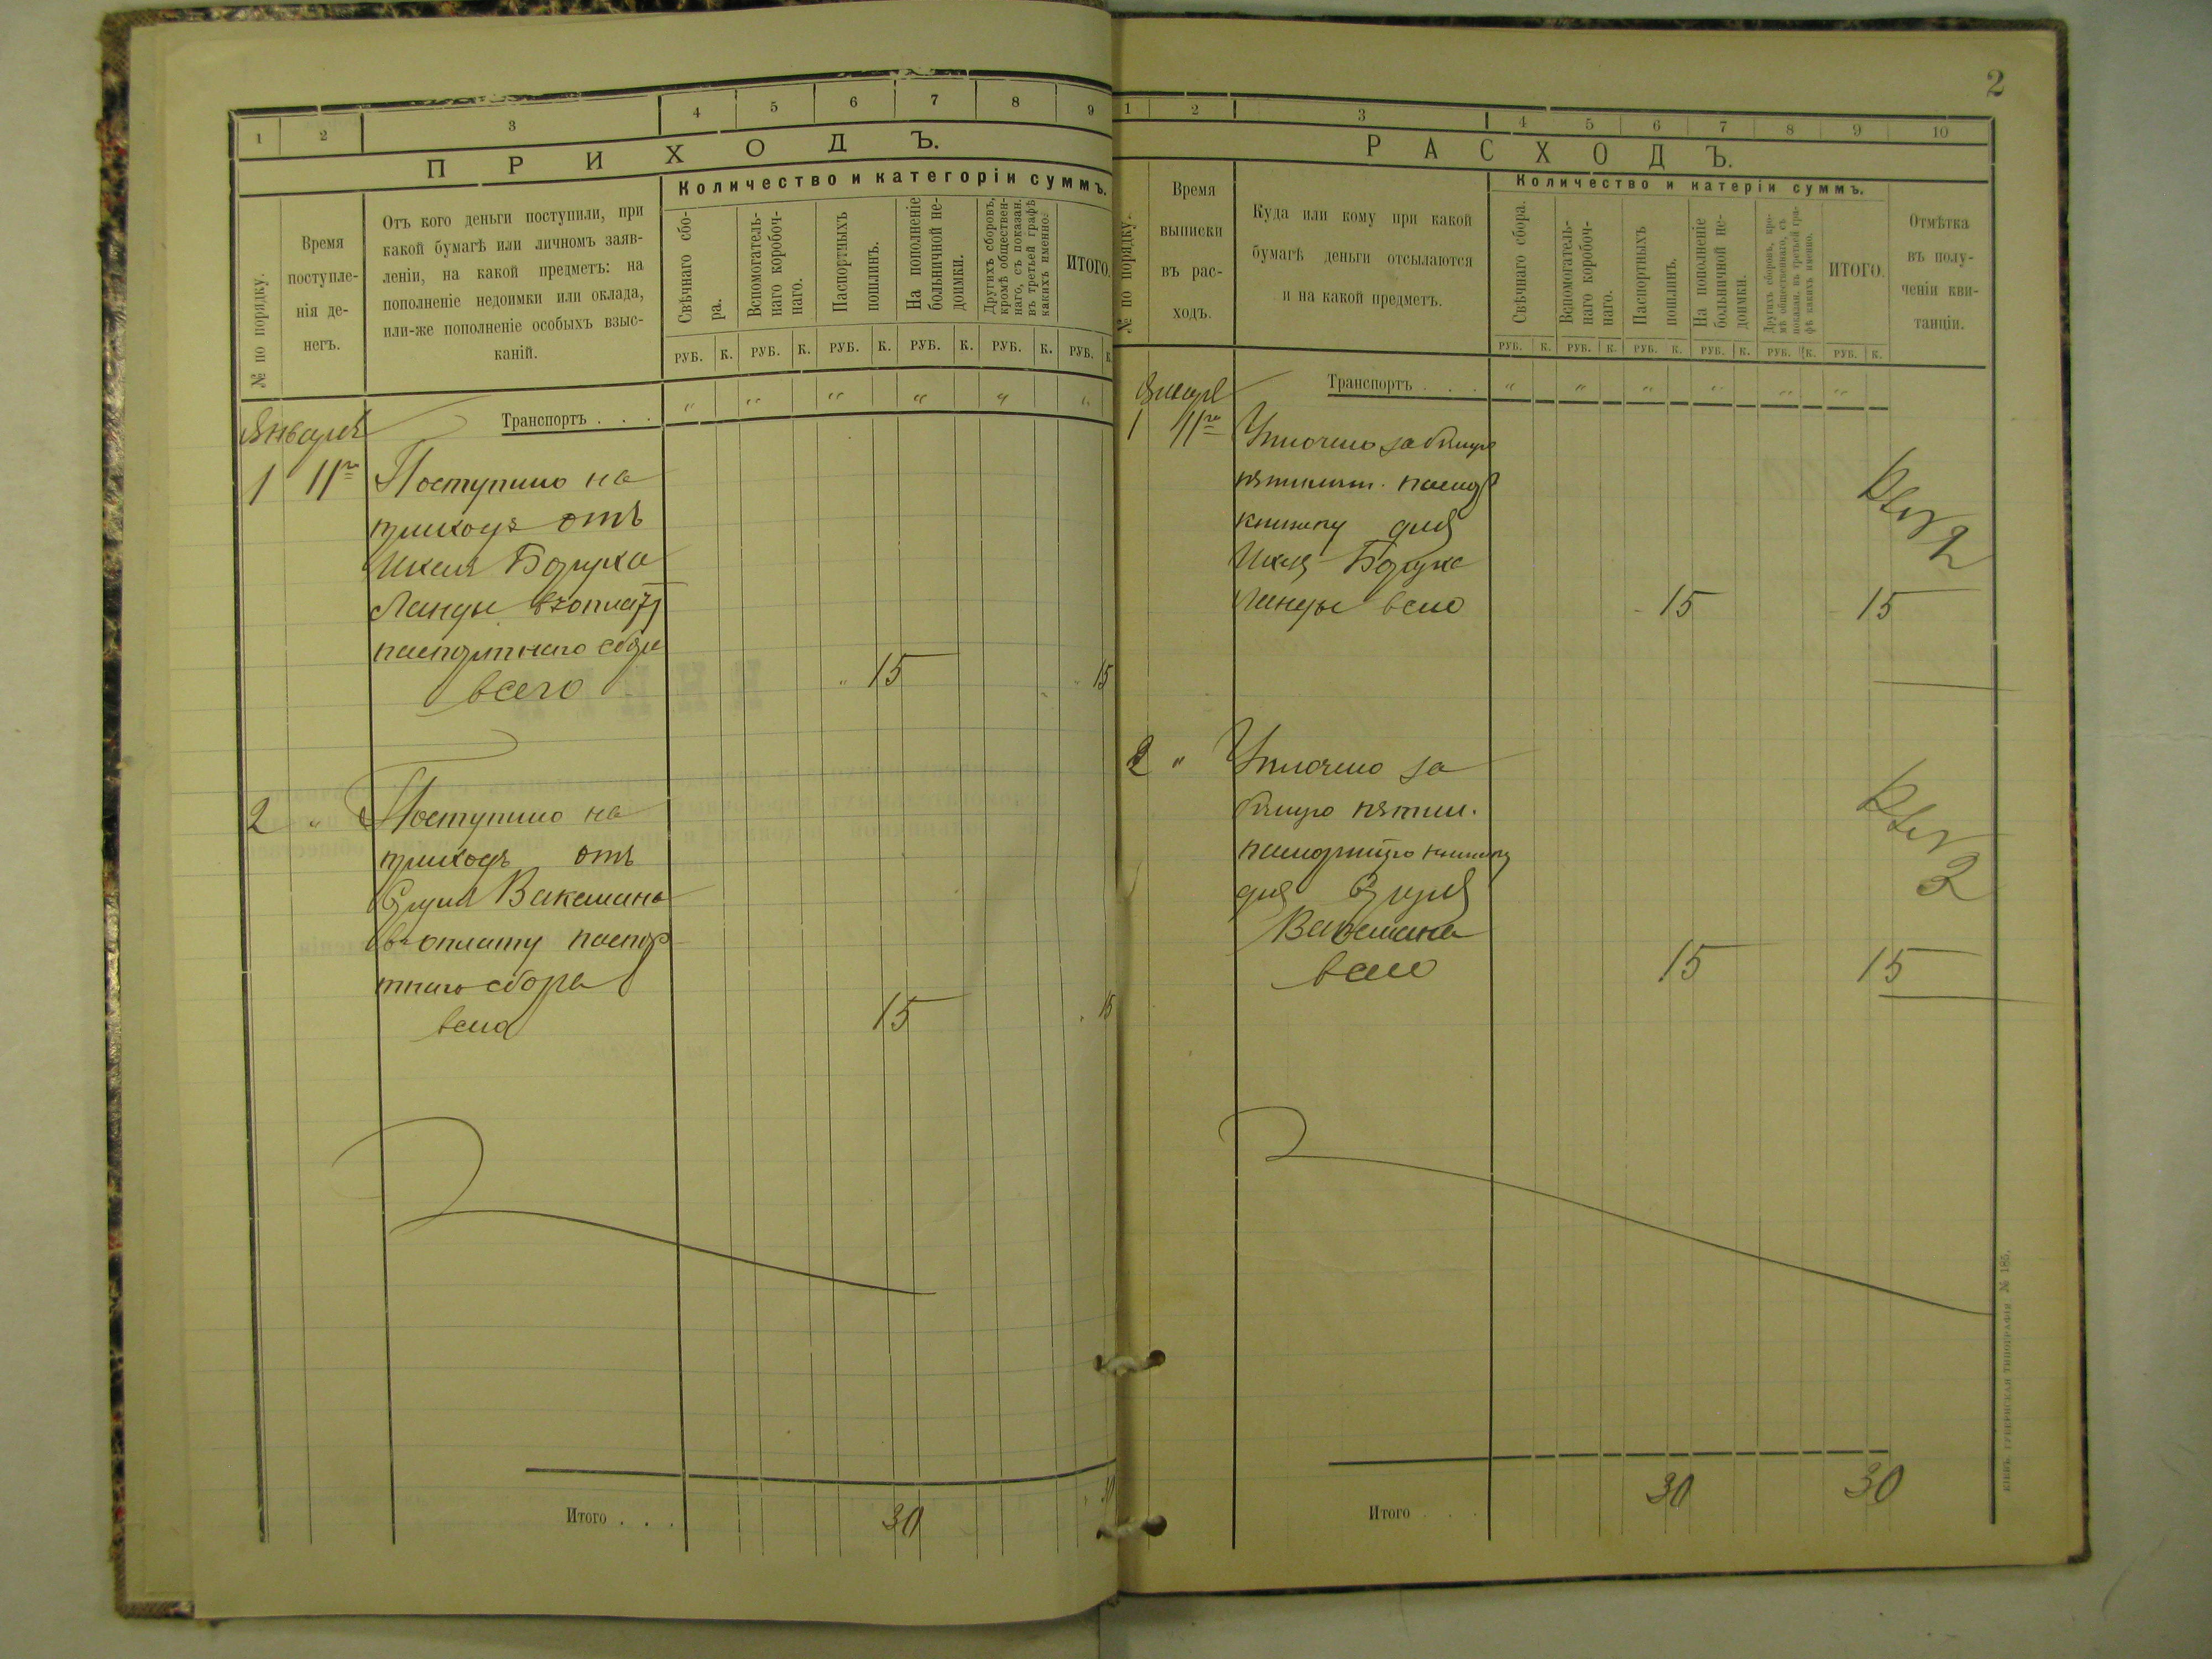 1 2 3 4 5 6 7 8 9
ПРИХОДЪ.
№ по порядку.
Время
поступле-
нія де-
негъ.
Отъ кого деньги поступили, при
какой бумагѣ или личномъ заяв-
леніи, на какой предметъ: на
пополненіе недоимки или оклада,
или-же пополненіе особыхъ взыс-
каній.
Количество и категоріи суммъ.
Свѣчнаго сбо-
ра.
Вспомогатель-
наго коробоч-
наго.
Паспортныхъ
пошлинъ.
На пополненіе
больничной не-
доимки.
Другихъ сборовъ,
кромѣ обществен-
наго, съ показан.
въ третьей графѣ
какихъ именно.
ИТОГО.
РУБ. К. РУБ. К. РУБ. К. РУБ. К. РУБ. К. РУБ. К.
Транспортъ . . . " " " " " "
Января
1 11го Поступило на
приходъ отъ
Ихеля Боруха
Ланды въ оплату
паспортнаго сбора
всего " 15 " 15
2 " Поступило на
приходъ отъ
Вакемана
въ оплату паспор
тнаго сбора
всего 15 " 15
Итого . . . 30 " 30
2
1 2 3 4 5 6 7 8 9 10
РАСХОДЪ.
№ по порядку.
Время
выписки
въ рас-
ходъ.
Куда или кому при какой
бумагѣ деньги отсылаются
и на какой предметъ.
Количество и катеріи суммъ.
Свѣчнаго сбора.
Вспомогатель-
наго коробоч-
наго.
Паспортныхъ
пошлинъ.
На пополненіе
больничной не-
доимки.
Другихъ сборовъ, кро-
мѣ общественнаго, съ
показан. въ третьей гра-
фѣ какихъ именно.
ИТОГО.
Отмѣтка
въ полу-
ченіи кви-
танціи.
РУБ. К. РУБ. К. РУБ. К. РУБ. К. РУБ. К. РУБ. К.
Января
Транспортъ . . . " " " " " "
1 11го Уплочено за
пятилѣтн. паспор
книжку для
Ихеля Боруха
Ланды всего 15 15
2
2 " Уплочено за
пятил.
книжку
для
Вакемана
всего 15 15
2
Итого . . . 30 30
КІЕВЪ. ГУБЕРНСКАЯ ТИПОГРАФІЯ № 185.